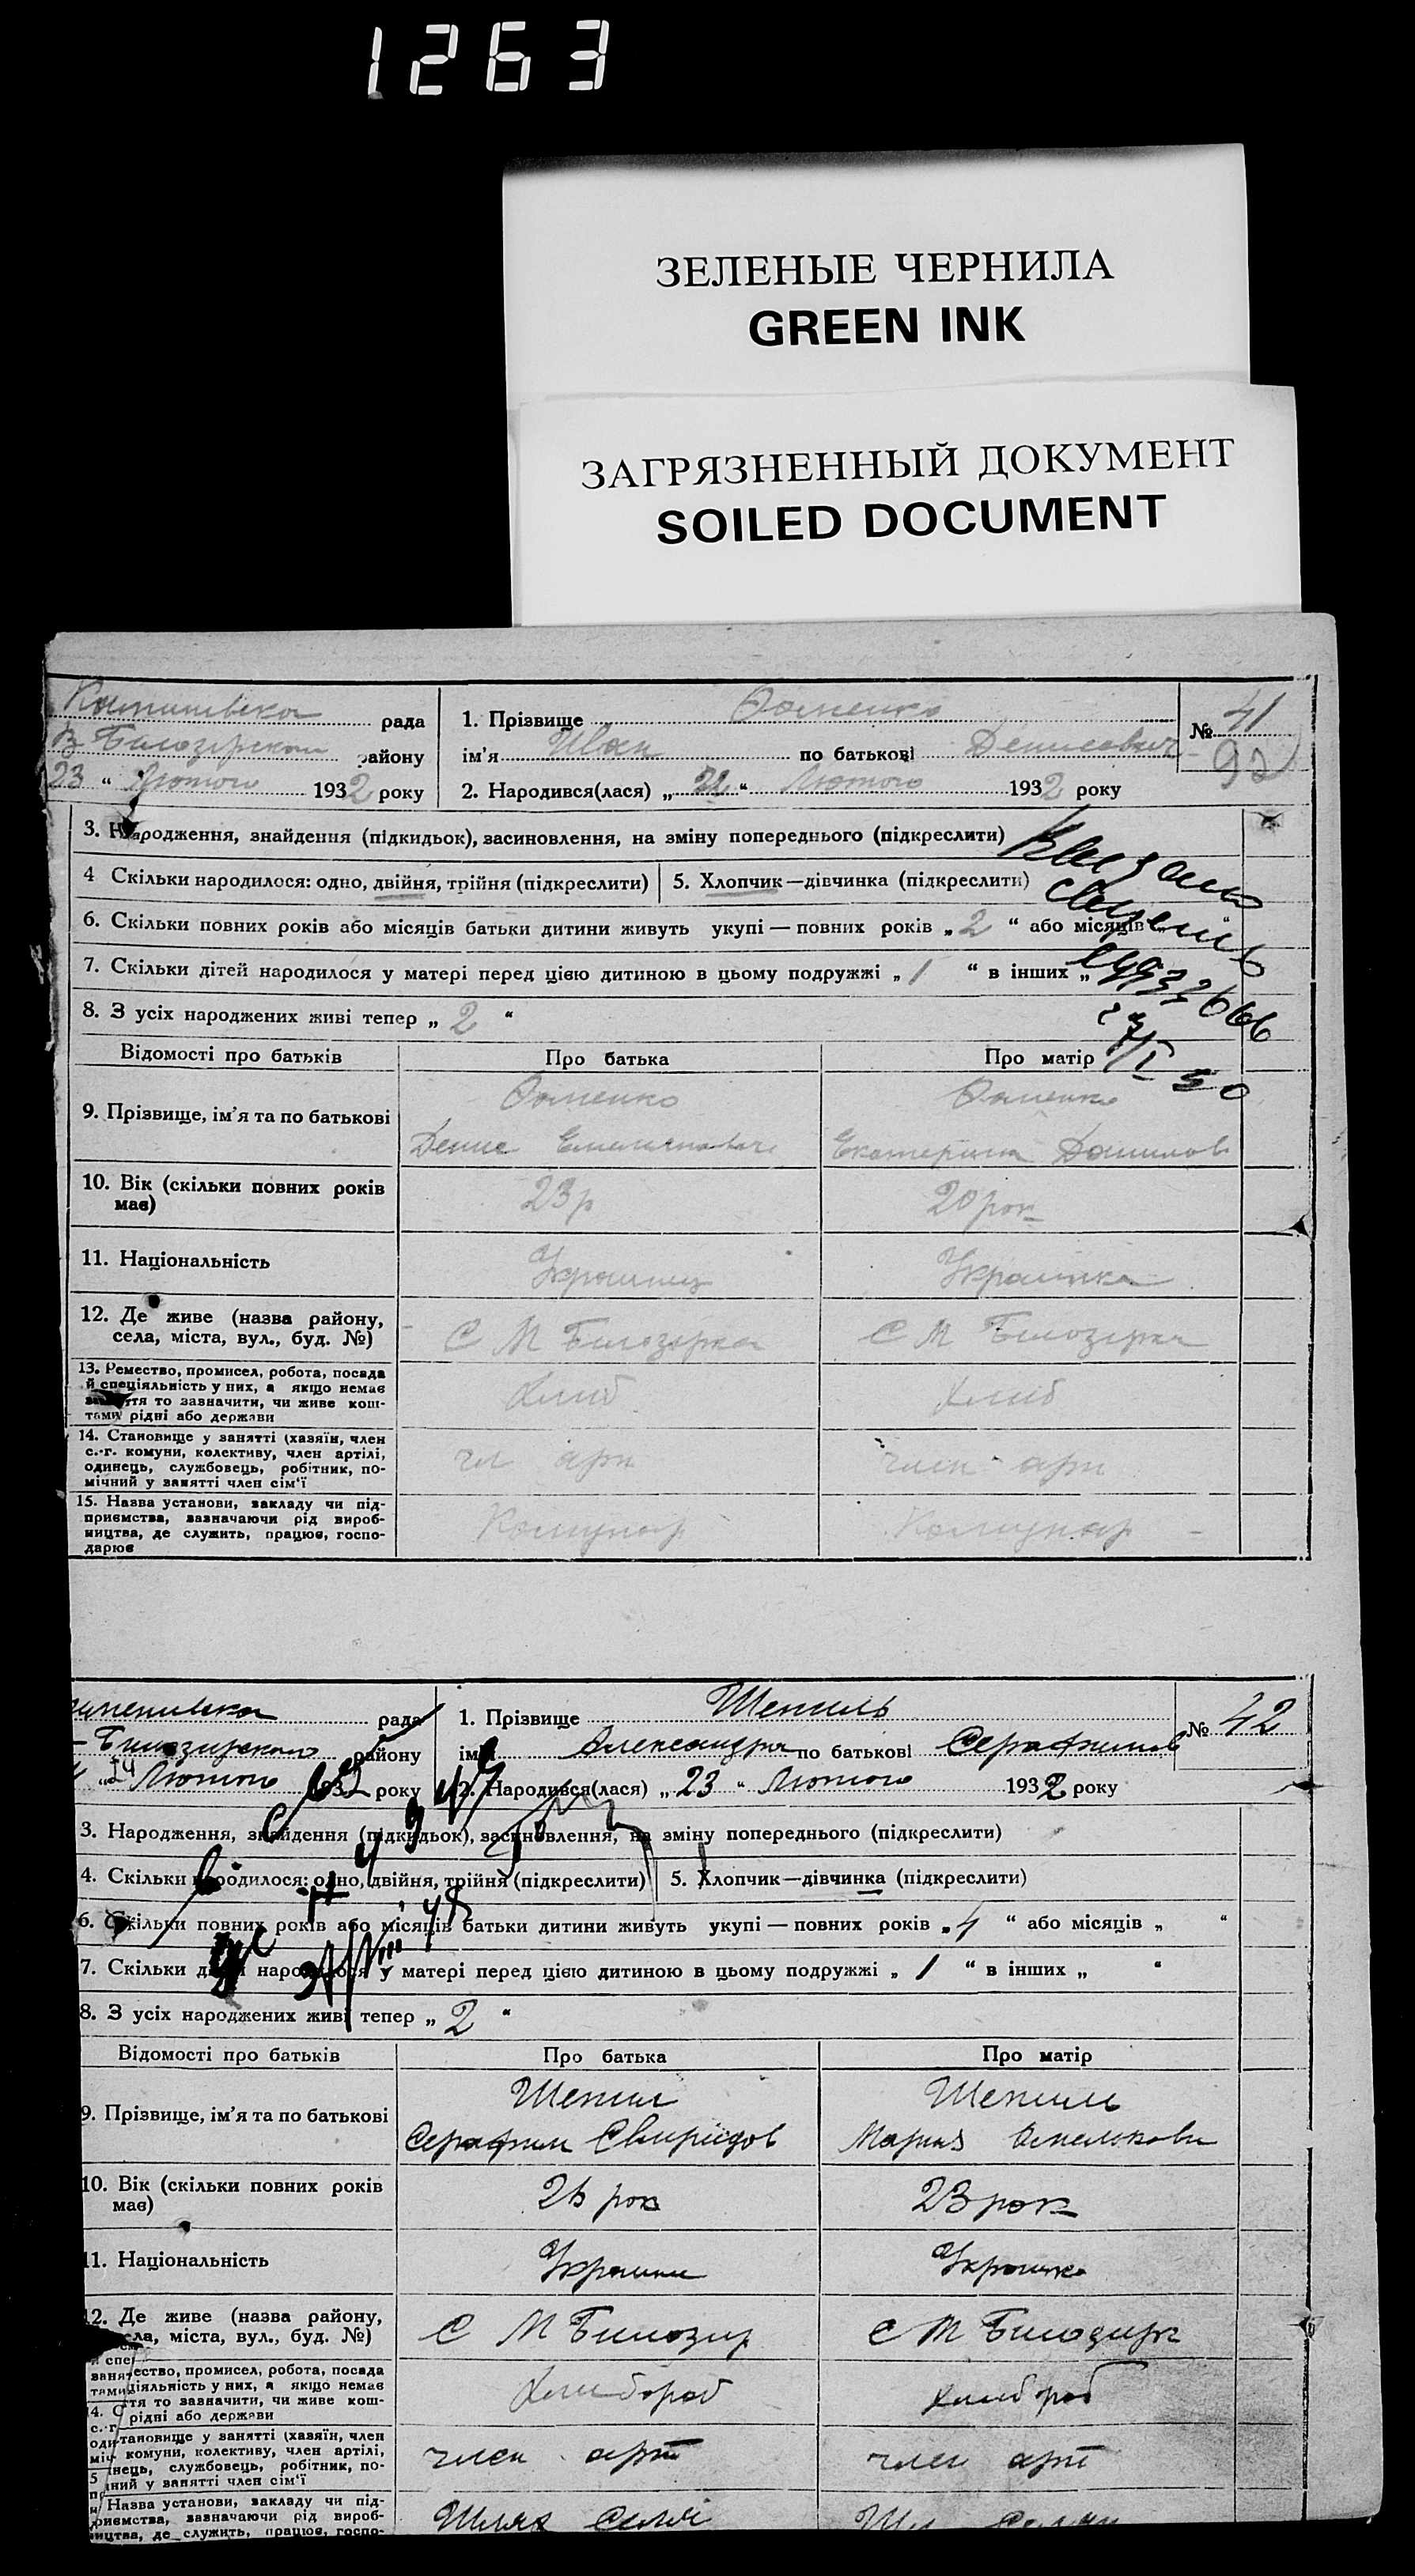 1263
ЗЕЛЕНЫЕ ЧЕРНИЛА
GREEN INK
ЗАГРЯЗНЕННЫЙ ДОКУМЕНТ
SOILED DOCUMENT
рада
1. Прізвище
№ 41
району
ім'я Иван по батькові Денисович
92
23 “ Лютого 1932 року
2. Народився(лася) „ 22 “ Лютого 1932 року
3. Народження, знайдення (підкидьок), засиновлення, на зміну попереднього (підкреслити)
4 Скільки народилося: одно, двійня, трійня (підкреслити)
5. Хлопчик—дівчинка (підкреслити)
6. Скільки повних років або місяців батьки дитини живуть укупі — повних років „ 2 “ або місяців “
7. Скільки дітей народилося у матері перед цією дитиною в цьому подружжі „ 1 “ в інших „
8. З усіх народжених живі тепер „ 2 “
Відомості про батьків
Про батька
Про матір
9. Прізвище, ім'я та по батькові
Денис
Екатерина
10. Вік (скільки повних років має)
23р
20 рок
11. Національність
Украинец
Украинка
12. Де живе (назва району, села, міста, вул., буд. №)
С М Билозерка
С М Билозерка
13. Ремество, промисел, робота, посада
й спеціяльність у них, а якщо немає
заняття то зазначити, чи живе кош-
тами рідні або держави
Хлиб
Хлиб
14. Становище у занятті (хазяїн, член
с.-г. комуни, колективу, член артілі,
одинець, службовець, робітник, по-
мічний у занятті член сім'ї
чл арт
член арт
15. Назва установи, закладу чи під-
приємства, зазначаючи рід вироб-
ництва, де служить, працює, госпо-
дарює
Комунар
Комунар
рада
1. Прізвище Шепиль
№ 42
району
ім'я Александра по батькові Серафимов
Лютого 1932 року
2. Народився(лася) „ 23 “ Лютого 1932 року
3. Народження, знайдення (підкидьок), засиновлення, на зміну попереднього (підкреслити)
4. Скільки народилося: одно, двійня, трійня (підкреслити)
5. Хлопчик—дівчинка (підкреслити)
6. Скільки повних років або місяців батьки дитини живуть укупі — повних років „ 4 “ або місяців „ “
7. Скільки дітей народилося у матері перед цією дитиною в цьому подружжі „ 1 “ в інших „ “
8. З усіх народжених живі тепер „ 2 “
Відомості про батьків
Про батька
Про матір
9. Прізвище, ім'я та по батькові
Шепил
Шепиль
Серафим Свиридов
Мария
10. Вік (скільки повних років має)
рок
23 рок
11. Національність
Украин
Украинка
12. Де живе (назва району,
села, міста, вул., буд. №)
С М Билозир
С М Билозирк
ество, промисел, робота, посада
ціяльність у них, а якщо немає
ття то зазначити, чи живе кош-
рідні або держави
Хлибороб
Хлибороб
тановище у занятті (хазяїн, член
комуни, колективу, член артілі,
инець, службовець, робітник, по-
чний у занятті член сім'ї
член арт
член арт
Назва установи, закладу чи під-
приємства, зазначаючи рід вироб-
ництва, де служить, працює, госпо-
Шлях Селян